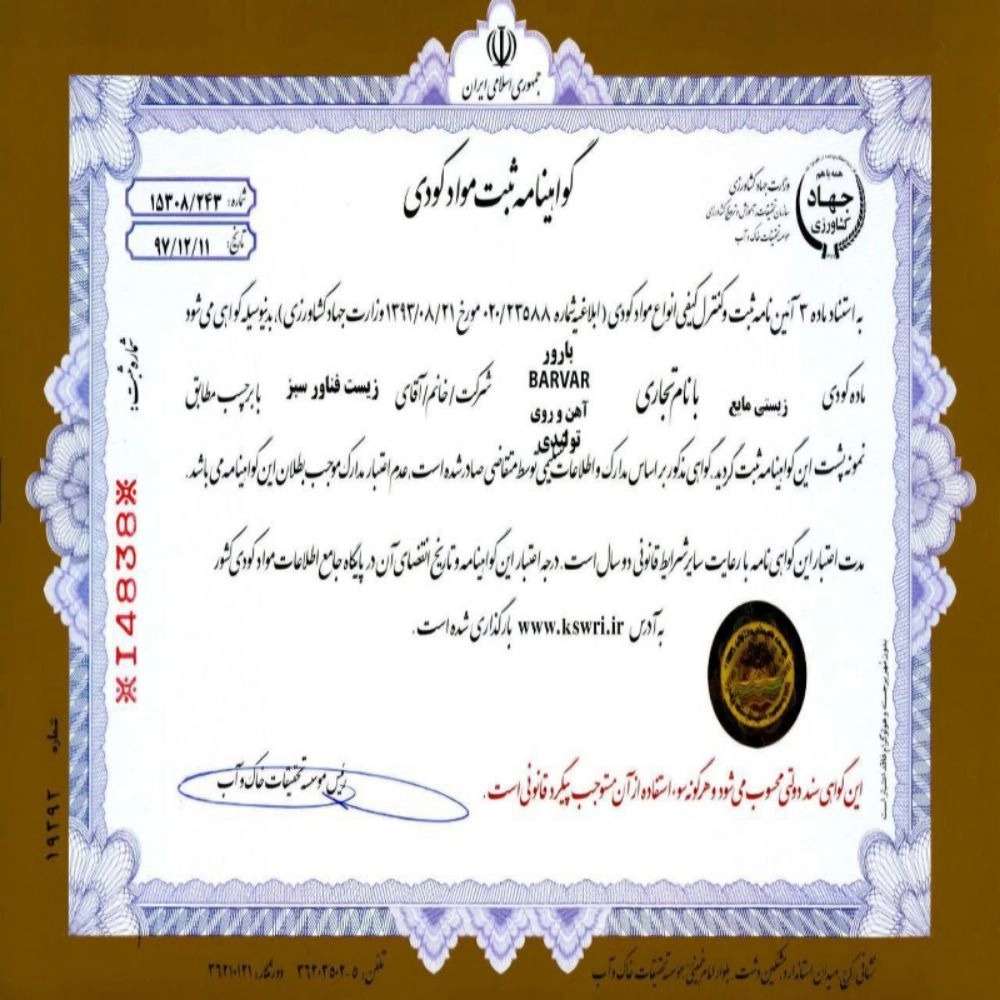 جمهوری اسلامی ایران
همه با هم
جهاد
کشاورزی
وزارت جهاد کشاورزی
سازمان تحقیقات، آموزش و ترویج کشاورزی
موسسه تحقیقات خاک و آب
گواهینامه ثبت مواد کودی
شماره: ۱۵۳۰۸/۲۴۳
تاریخ: ۹۷/۱۲/۱۱
به استناد ماده ۳ آئین نامه ثبت و کنترل کیفی انواع مواد کودی (ابلاغیه شماره ۰۲۰/۲۳۵۸۸ مورخ ۱۳۹۳/۰۸/۲۱ وزارت جهاد کشاورزی)، بدینوسیله گواهی می شود
ماده کودی زیستی مایع با نام تجاری بارور BARVAR آهن و روی تولیدی شرکت/خانم/آقای زیست فناور سبز با برچسب مطابق
نمونه پشت این گواهینامه ثبت گردید. گواهی مذکور بر اساس مدارک و اطلاعات توسط متقاضی صادر شده است. عدم اعتبار مدارک موجب بطلان این گواهینامه می باشد.
مدت اعتبار این گواهی نامه با رعایت سایر شرایط قانونی دو سال است. درجه اعتبار این گواهینامه و تاریخ انقضای آن در پایگاه جامع اطلاعات مواد کودی کشور
به آدرس www.kswri.ir بارگذاری شده است.
شماره ثبت:
※14838※
این گواهی سند دولتی محسوب می شود و هرگونه سوء استفاده از آن مستوجب پیگرد قانونی است.
رئیس موسسه تحقیقات خاک و آب
بدون مهر برجسته و هولوگرام فاقد اعتبار است
شماره: ۱۹۲۹۲
نشانی: کرج، میدان استاندارد، مشکین دشت، بلوار امام خمینی، موسسه تحقیقات خاک و آب
تلفن: ۵-۳۶۲۰۳۵۰۲ دورنگار: ۳۶۲۱۰۱۲۱